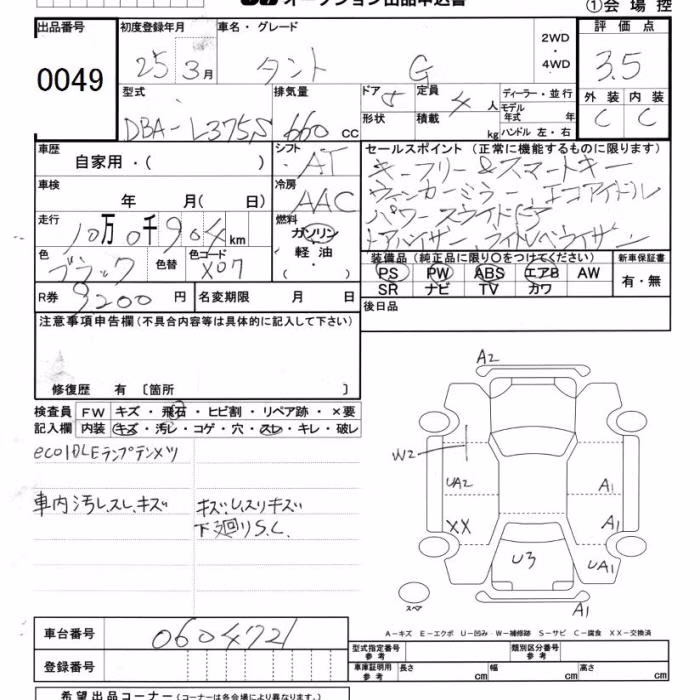 オークション出品申込書
①会場控
出品番号 初度登録年月 車名・グレード 2WD・4WD 評価点
0049 25 3月 タント G 3.5
型式 排気量 ドア 5 定員 4人 ディーラー・並行 外装 内装
DBA-L375S 660cc 形状 積載 kg モデル年式 年 C C
ハンドル 左・右
車歴 自家用・( ) シフト AT セールスポイント (正常に機能するものに限ります)
キーフリー&スマートキー
車検 年 月( 日) 冷房 AAC ウィンカーミラー、エコアイドル
走行 10万0千904km 燃料 ガソリン パワースライドドア
軽油 ドアバイザー、ライトレベライザー
(・)
色 ブラック 色替 色コード X07 装備品 (純正品に限り○をつけてください) 新車保証書
PS PW ABS エアB AW 有・無
R券 9200円 名変期限 月 日 SR ナビ TV カワ
注意事項申告欄 (不具合内容等は具体的に記入して下さい) 後日品
修復歴 有 〔箇所 〕
検査員 FW キズ・飛石・ヒビ割・リペア跡・×要
記入欄 内装 キズ・汚レ・コゲ・穴・スレ・キレ・破レ
ecoIDLEランプテンメツ
車内汚レスレ.キズ キズ.レスリキズ
下廻りS.C.
A2
W2
UA2 A1
XX A1
U3 UA1
スペア A1
A-キズ E-エクボ U-凹み W-補修跡 S-サビ C-腐食 XX-交換済
車台番号 0604721
型式指定番号 参考 類別区分番号 参考
登録番号 車庫証明用 参考 長さ cm 幅 cm 高さ cm
希望出品コーナー (コーナーは各会場により異なります。)